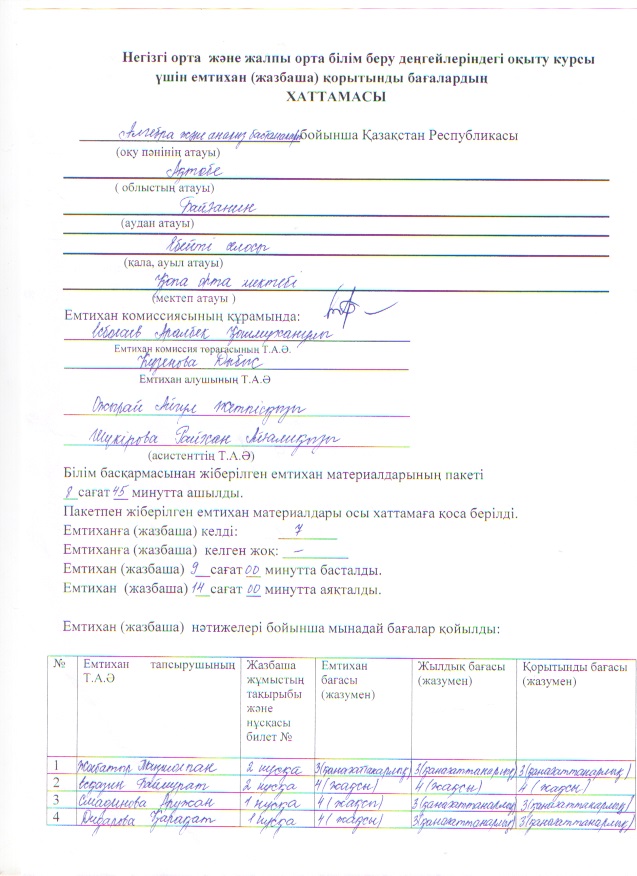 Негізгі орта және жалпы орта білім беру деңгейлеріндегі оқыту курсы
үшін емтихан (жазбаша) қорытынды бағалардың
ХАТТАМАСЫ
Алгебра және анализ бастамалары бойынша Қазақстан Республикасы
(оқу пәнінің атауы)
Ақтөбе
( облыстың атауы)
Байғанин
(аудан атауы)
Ебейті селосы
(қала, ауыл атауы)
Қопа орта мектебі
(мектеп атауы )
Емтихан комиссиясының құрамында:
Аралбек
Емтихан комиссия төрағасының Т.А.Ә.
Емтихан алушының Т.А.Ә
Айгул
Шукірова Райхан
(асистенттің Т.А.Ә)
Білім басқармасынан жіберілген емтихан материалдарының пакеті
8 сағат 45 минутта ашылды.
Пакетпен жіберілген емтихан материалдары осы хаттамаға қоса берілді.
Емтиханға (жазбаша) келді: 7
Емтиханға (жазбаша) келген жоқ: –
Емтихан (жазбаша) 9 сағат 00 минутта басталды.
Емтихан (жазбаша) 14 сағат 00 минутта аяқталды.
Емтихан (жазбаша) нәтижелері бойынша мынадай бағалар қойылды:
№ Емтихан тапсырушының Т.А.Ә Жазбаша жұмыстың тақырыбы және нұсқасы билет № Емтихан бағасы (жазумен) Жылдық бағасы (жазумен) Қорытынды бағасы (жазумен)
1 2 нұсқа 3(қанағаттанарлық) 3(қанағаттанарлық) 3(қанағаттанарлық)
2 Баймурат 2 нұсқа 4 (жақсы) 4 (жақсы) 4 (жақсы)
3 Смадинова Аружан 1 нұсқа 4 (жақсы) 3(қанағаттанарлық) 3(қанағаттанарлық)
4 Дидарова Қарақат 1 нұсқа 4 (жақсы) 3(қанағаттанарлық) 3(қанағаттанарлық)